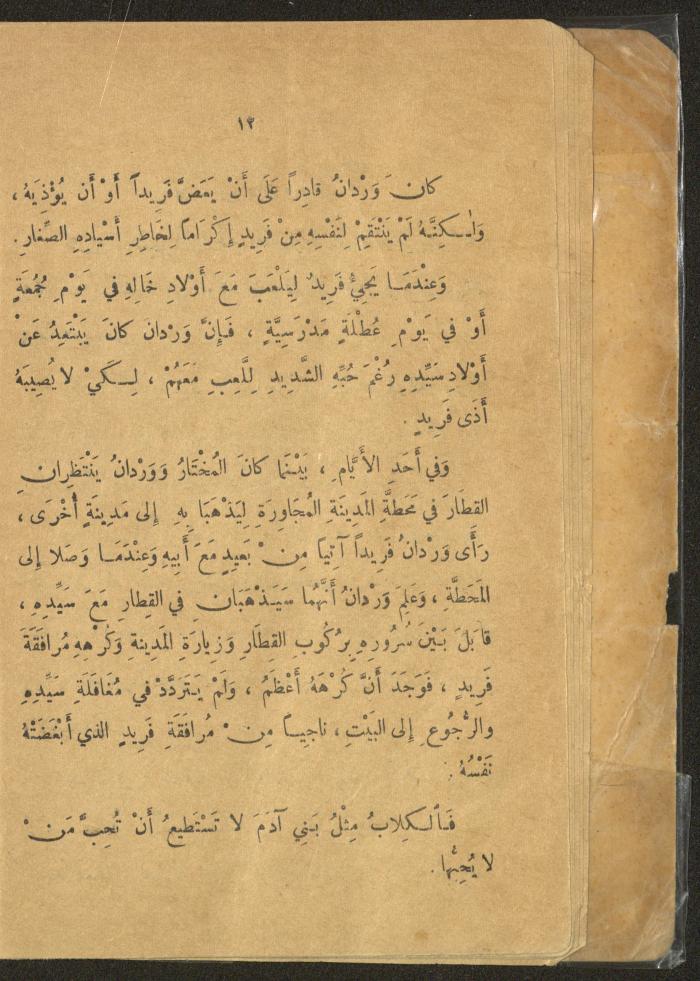 ١٢
كانَ وَرْدانُ قادِراً عَلَى أَنْ يَعَضَّ فَرِيداً أَوْ أَن يُؤْذِيَهُ ،
وَلٰكِنَّهُ لَمْ يَنْتَقِمْ لِنَفْسِهِ مِنْ فَرِيدٍ إِكْرَاماً لِخَاطِرِ أَسْيادِهِ الصِّغارِ .
وَعِنْدَمَا يَجِيءُ فَرِيدٌ لِيَلْعَبَ مَعَ أَوْلادِ خَالِهِ في يَوْمِ جُمُعَةٍ
أَوْ في يَومِ عُطْلَةٍ مَدْرَسِيَّةٍ ، فَإِنَّ وَرْدانَ كانَ يَبْتَعِدُ عَنْ
أَوْلادِ سَيِّدِهِ رُغْمَ حُبِّهِ الشَّدِيدِ لِلَّعِبِ مَعَهُمْ ، لِكَيْ لا يُصِيبَهُ
أَذَى فَرِيدٍ .
وَفي أَحَدِ الأَيَّامِ ، بَيْنَمَا كانَ المُخْتَارُ وَوَرْدانُ يَنْتَظِرانِ
القِطَارَ في مَحَطَّةِ المَدِينَةِ المُجَاوِرَةِ لِيَذْهَبَا بِهِ إِلى مَدِينَةٍ أُخْرَى ،
رَأَى وَرْدانُ فَرِيداً آتِياً مِنْ بَعِيدٍ مَعَ أَبِيهِ وَعِنْدَمَا وَصَلا إِلى
المَحَطَّةِ ، وَعَلِمَ وَرْدانُ أَنَّهُما سَيَذْهَبَانِ في القِطارِ مَعَ سَيِّدِهِ ،
قابَلَ بَيْنَ سُرُورِهِ بِرُكُوبِ القِطَارِ وَزِيارَةِ المَدِينَةِ وَكُرْهِهِ مُرافَقَةَ
فَرِيدٍ ، فَوَجَدَ أَنَّ كُرْهَهُ أَعْظَمُ ، وَلَمْ يَتَرَدَّدْ في مُغَافَلَةِ سَيِّدِهِ
والرُّجُوعِ إِلى البَيْتِ ، ناجِياً مِنْ مُرافَقَةِ فَرِيدٍ الذي أَبْغَضَتْهُ
نَفْسُهُ .
فَالكِلابُ مِثْلُ بَنِي آدَمَ لا تَسْتَطِيعُ أَنْ تُحِبَّ مَنْ
لا يُحِبُّها .